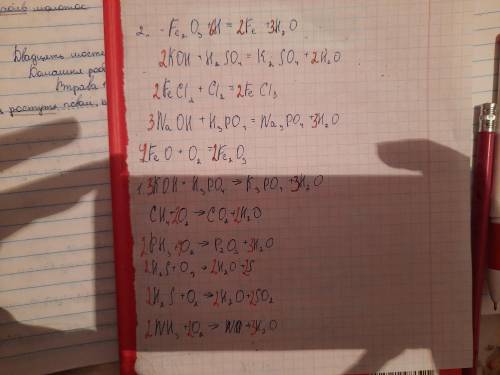 молотос
Двадцять шосте
Домашня роб
Вправа
ростуть
2. Fe₂O₃ + 6H = 2Fe + 3H₂O
2KOH + H₂SO₄ = K₂SO₄ + 2H₂O
2FeCl₂ + Cl₂ = 2FeCl₃
3NaOH + H₃PO₄ = Na₃PO₄ + 3H₂O
4FeO + O₂ = 2Fe₂O₃
1. 3KOH + H₃PO₄ → K₃PO₄ + 3H₂O
CH₄ + 2O₂ → CO₂ + 2H₂O
2PH₃ + O₂ → P₂O₃ + 3H₂O
2H₂S + O₂ → 2H₂O + 2S
2H₂S + O₂ → 2H₂O + 2SO₂
2NH₃ + O₂ → + 3H₂O